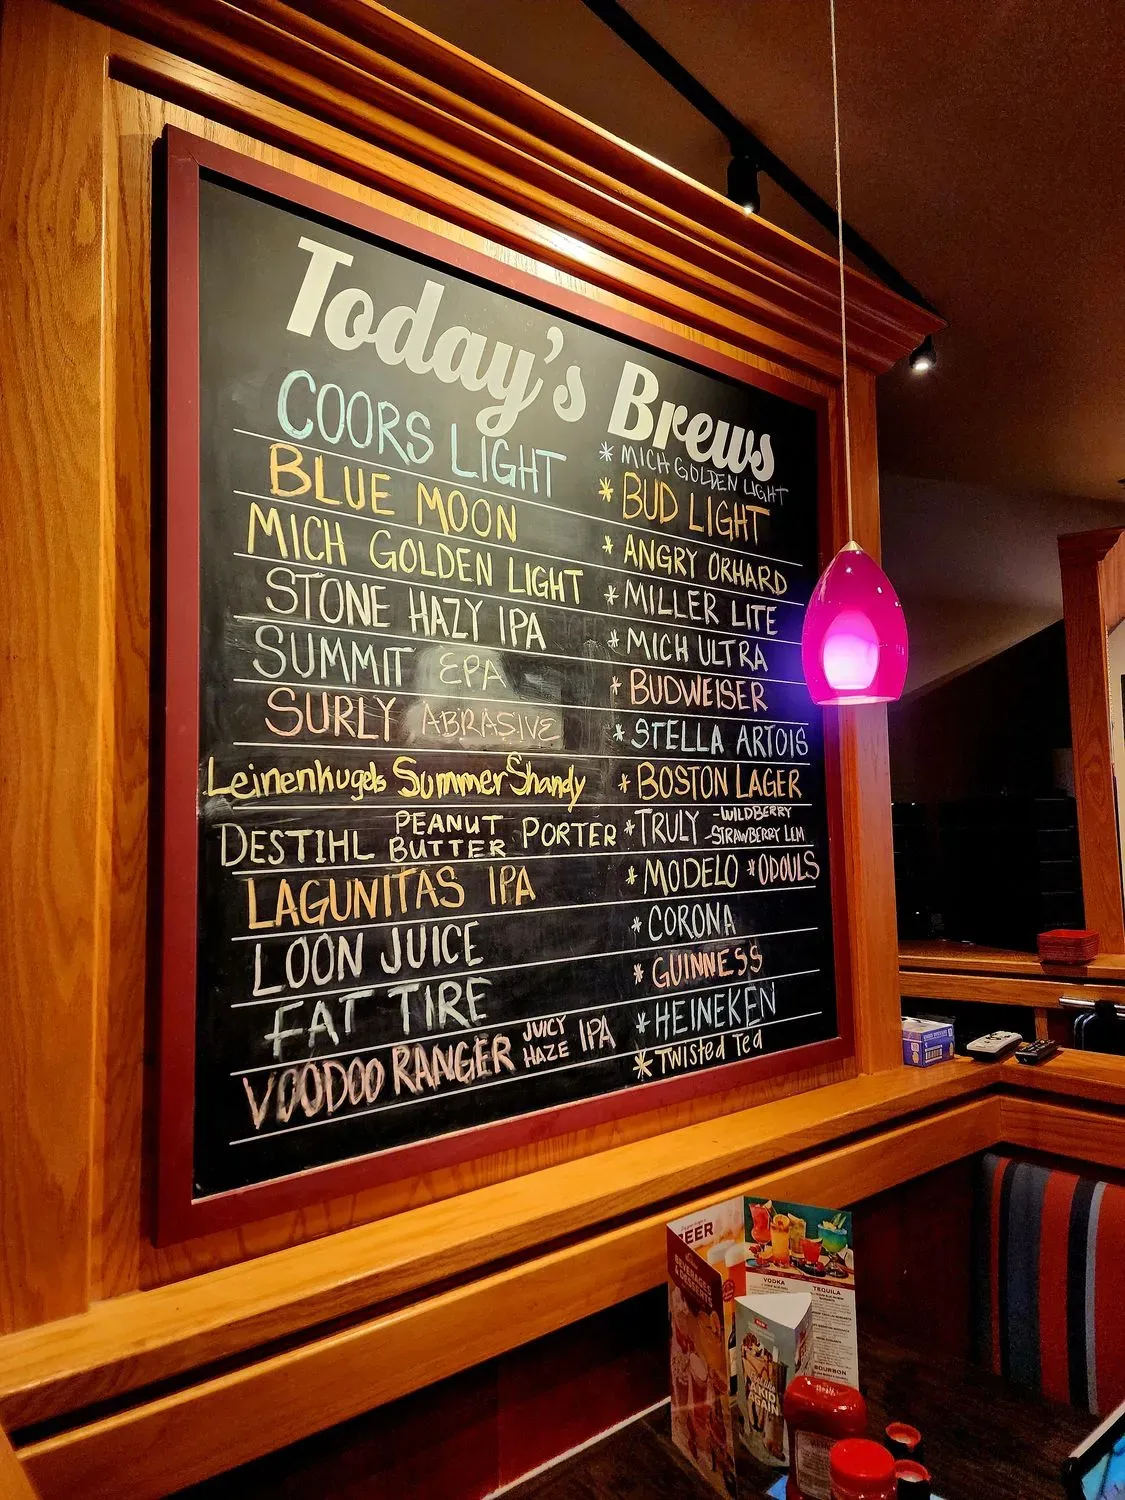 Today's Brews
COORS LIGHT
BLUE MOON
MICH GOLDEN LIGHT
STONE HAZY IPA
SUMMIT EPA
SURLY ABRASIVE
Leinenkugels Summer Shandy
DESTIHL PEANUT BUTTER PORTER
LAGUNITAS IPA
LOON JUICE
FAT TIRE
VOODOO RANGER JUICY HAZE IPA
* MICH GOLDEN LIGHT
* BUD LIGHT
* ANGRY ORHARD
* MILLER LITE
* MICH ULTRA
* BUDWEISER
* STELLA ARTOIS
* BOSTON LAGER
* TRULY -WILDBERRY
-STRAWBERRY LEM
* MODELO * ODOULS
* CORONA
* GUINNESS
* HEINEKEN
* Twisted Tea
VODKA
TEQUILA
BOURBON
A KID
AGAIN